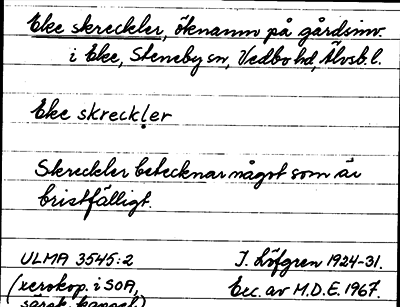 Eke skreckler, öknamn på gårdsinv.
i Eke, Steneby sn, Vedbo hd, Älvsb. l.
Eke skreckḷer
Skreckler betecknar något som är
bristfälligt.
ULMA 3545:2 J. Löfgren 1924-31.
(xerokop. i SOA, Exc. av M.D.E. 1967.
särsk. kapsel)